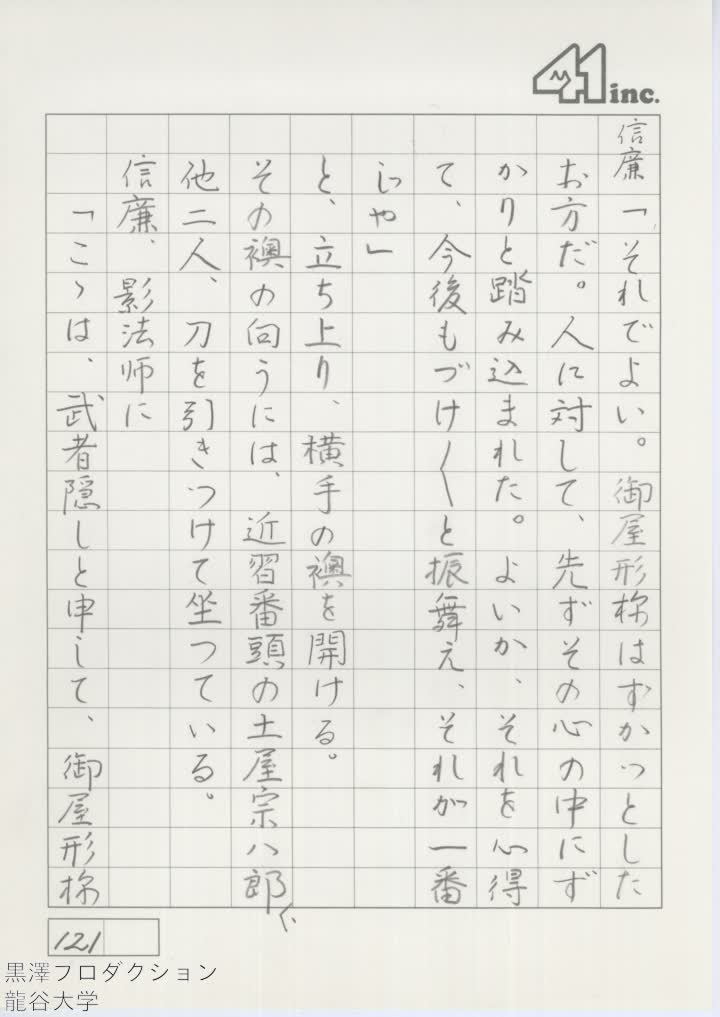 41 inc.
信廉「それでよい。御屋形様はずかっとした
お方だ。人に対して、先ずその心の中にず
かりと踏み込まれた。よいか、それを心得
て、今後もづけ〳〵と振舞え、それが一番
じゃ」
と、立ち上り、横手の襖を開ける。
その襖の向うには、近習番頭の土屋宗八郎
他二人、刀を引きつけて坐っている。
信廉、影法師に
「こゝは、武者隠しと申して、御屋形様
121
黒澤プロダクション
龍谷大学